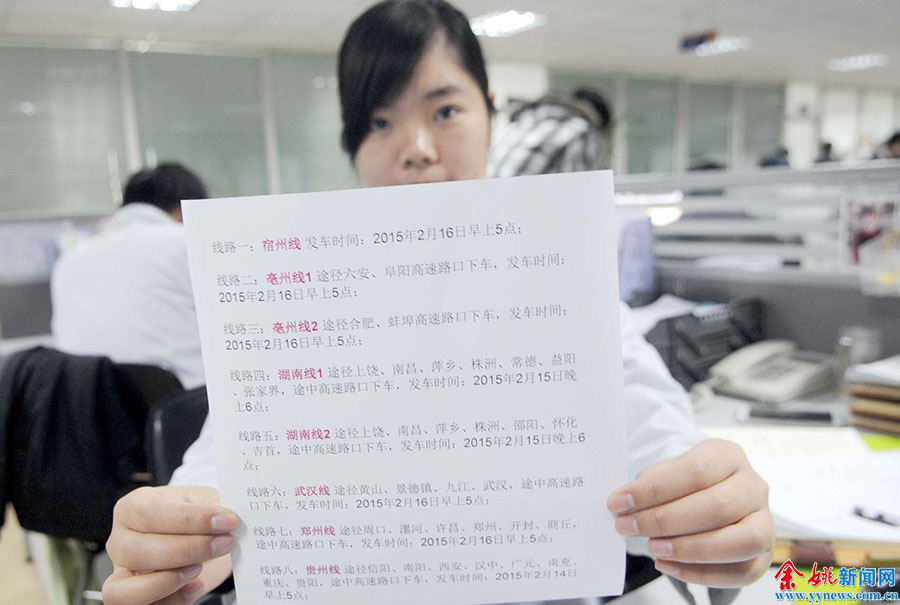 线路一：宿州线 发车时间：2015年2月16日早上5点；
线路二：亳州线1 途径六安、阜阳高速路口下车，发车时间：
2015年2月16日早上5点；
线路三：亳州线2 途径合肥、蚌埠高速路口下车，发车时间：
2015年2月16日早上5点；
线路四：湖南线1 途径上饶、南昌、萍乡、株洲、常德、益阳
、张家界，途中高速路口下车，发车时间：2015年2月15日晚
上6点；
线路五：湖南线2 途径上饶、南昌、萍乡、株洲、邵阳、怀化
、吉首，途中高速路口下车，发车时间：2015年2月15日晚上6
点；
线路六：武汉线 途径黄山、景德镇、九江、武汉，途中高速路
口下车，发车时间：2015年2月16日早上5点；
线路七：郑州线 途径周口、漯河、许昌、郑州、开封、商丘，
途中高速路口下车，发车时间：2015年2月16日早上5点；
线路八：贵州线 途径信阳、南阳、西安、汉中、广元、南充、
重庆、贵阳，途中高速路口下车，发车时间：2015年2月14日
早上5点；
余姚新闻网
www.yynews.com.cn